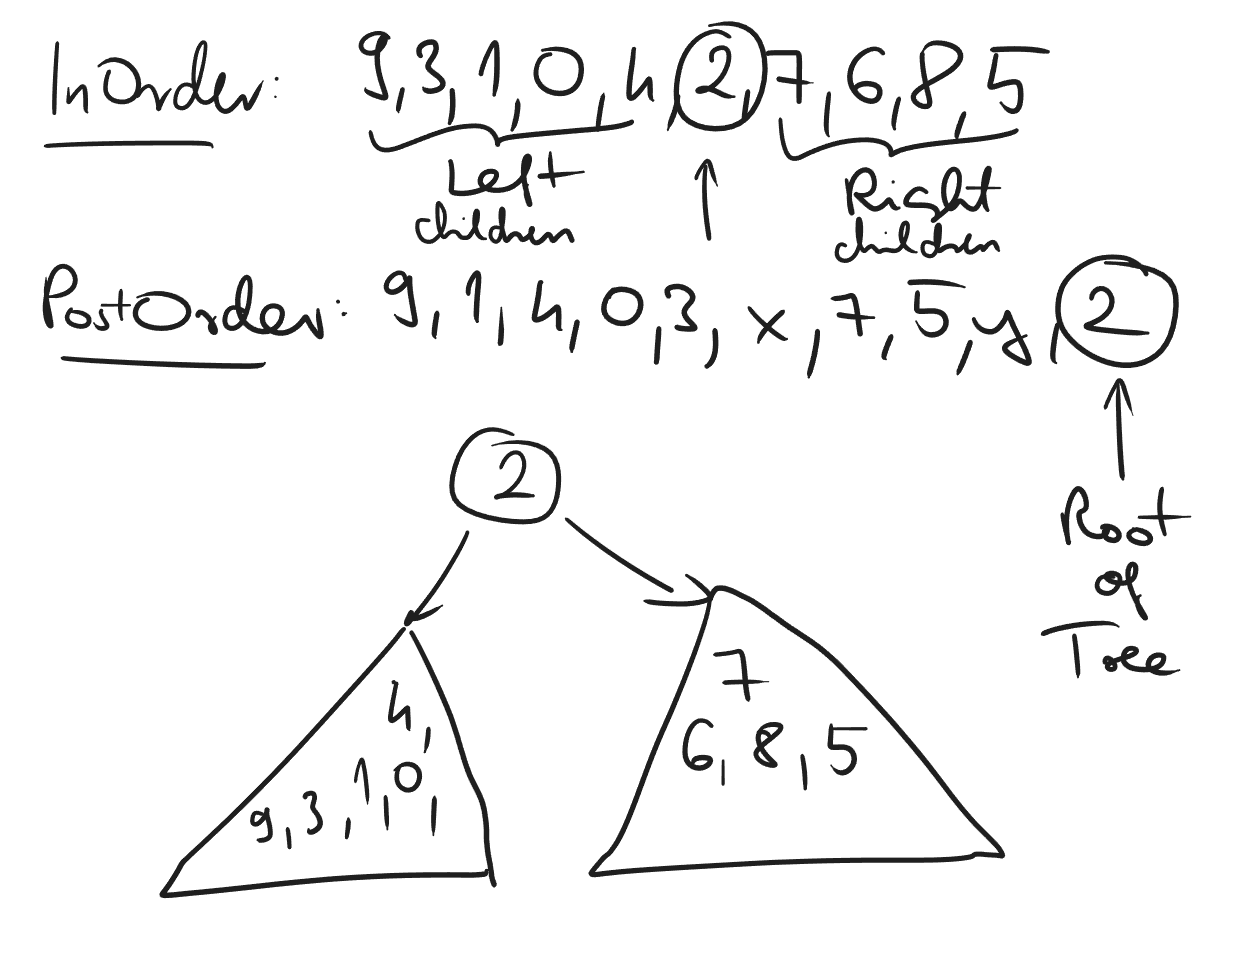 InOrder: 9,3,1,0,4,2,7,6,8,5
Left children
Right children
PostOrder: 9,1,4,0,3,x,7,5,y,2
Root of Tree
2
4,
9,3,1,0,
7
6,8,5